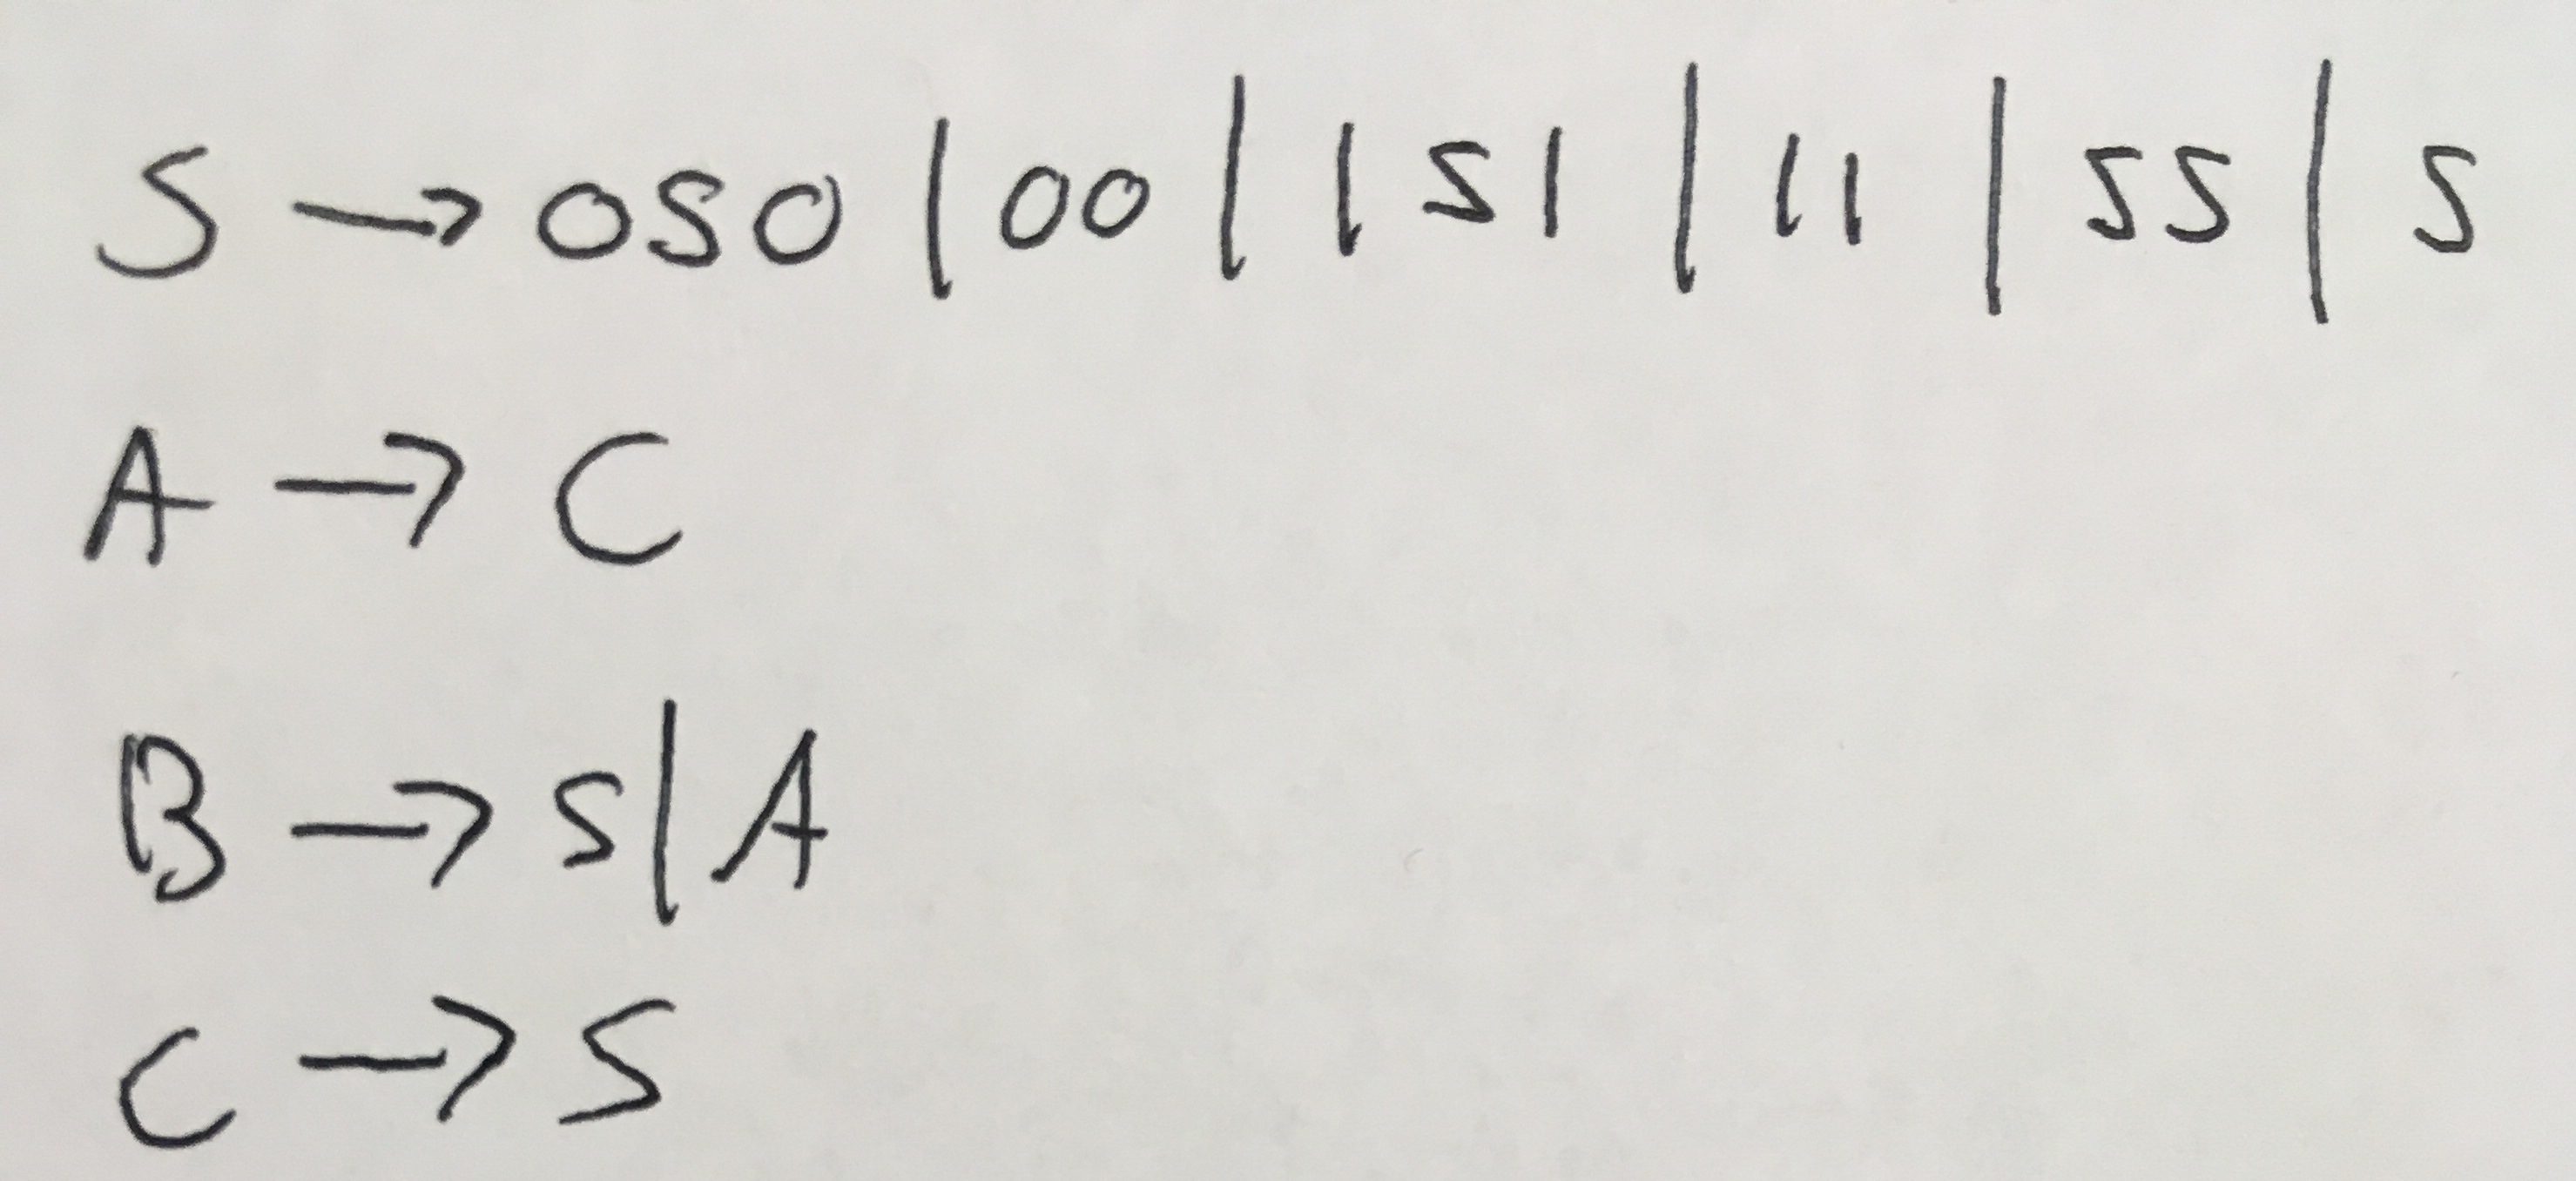 S → 0S0 | 00 | 1S1 | 11 | SS | S
A → C
B → S | A
C → S